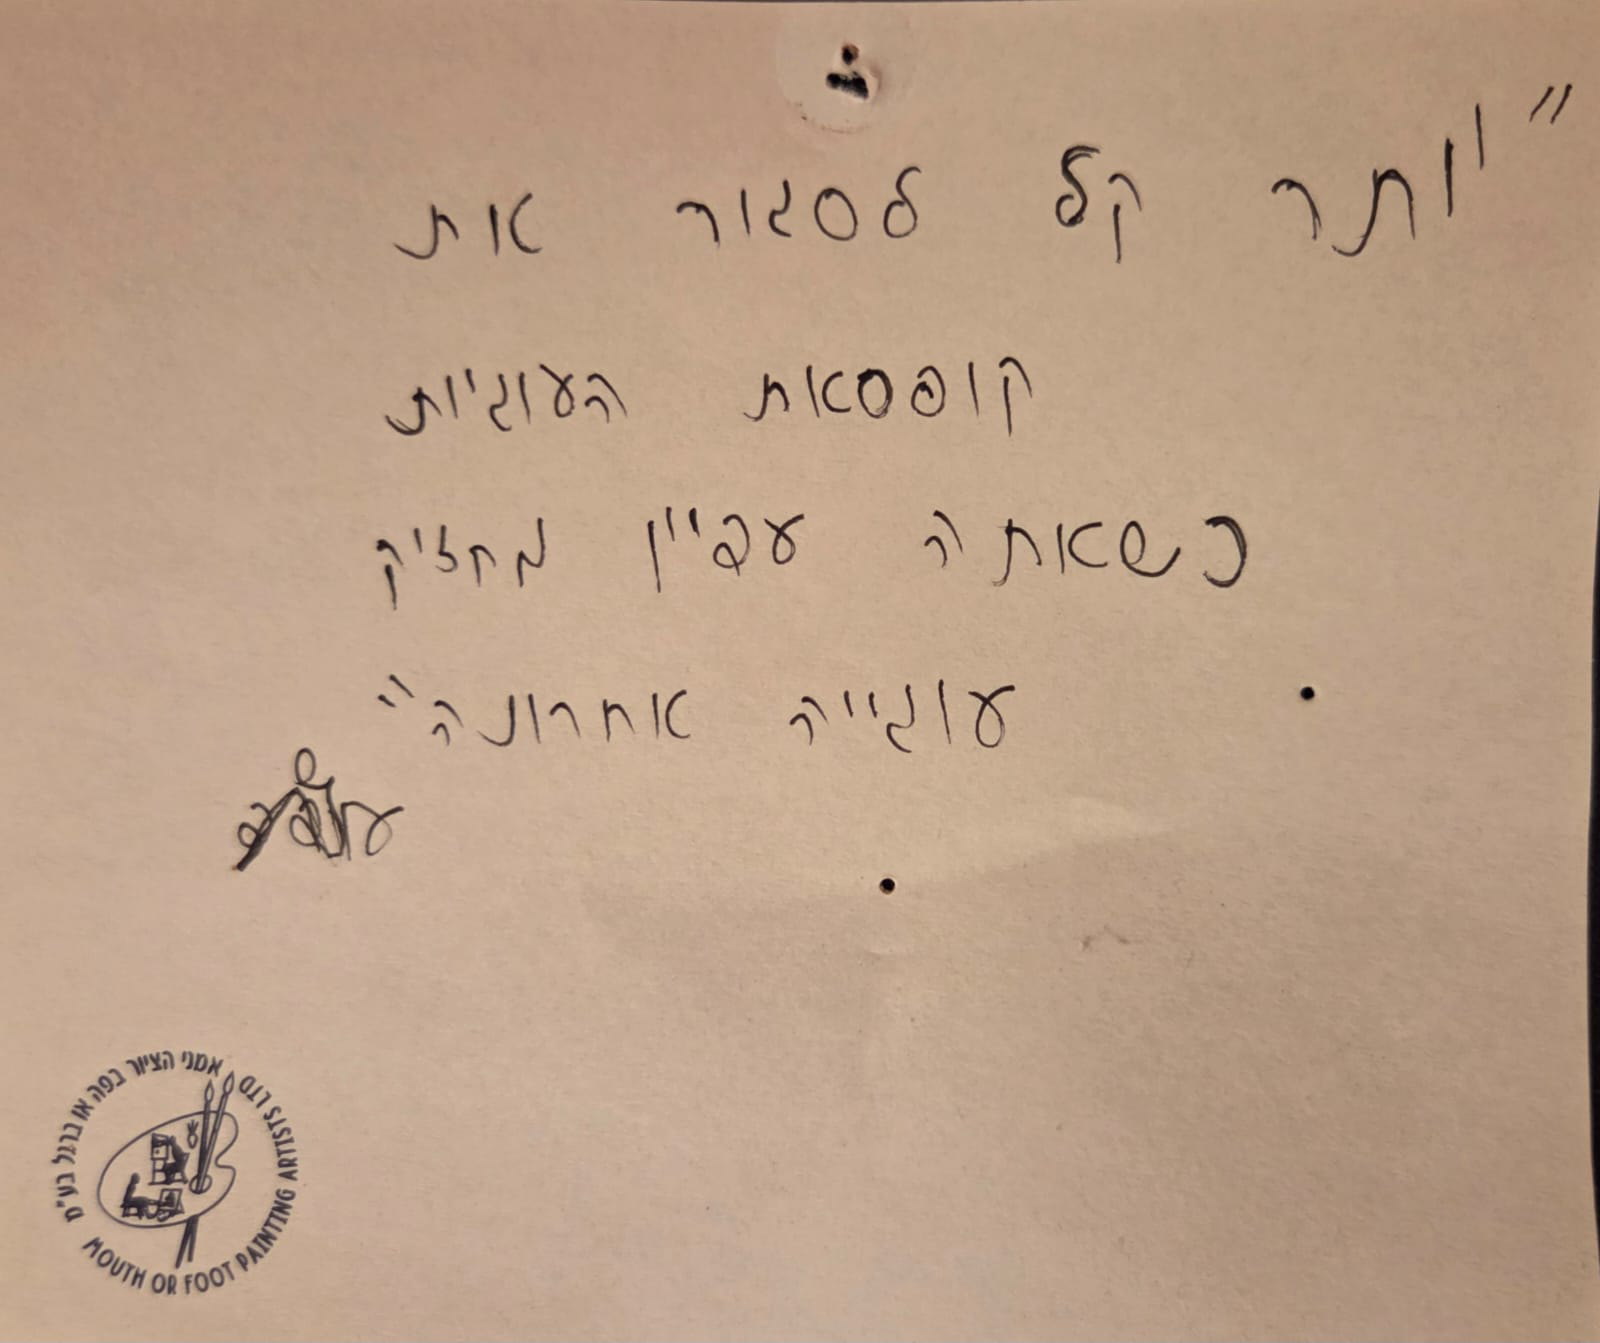 "יותר קל לסגור את
קופסאת העוגיות
כשאתה עפיין מחזיק
עוגייה אחרונה"
אמני הציור בפה או ברגל בע"מ
MOUTH OR FOOT PAINTING ARTISTS LTD